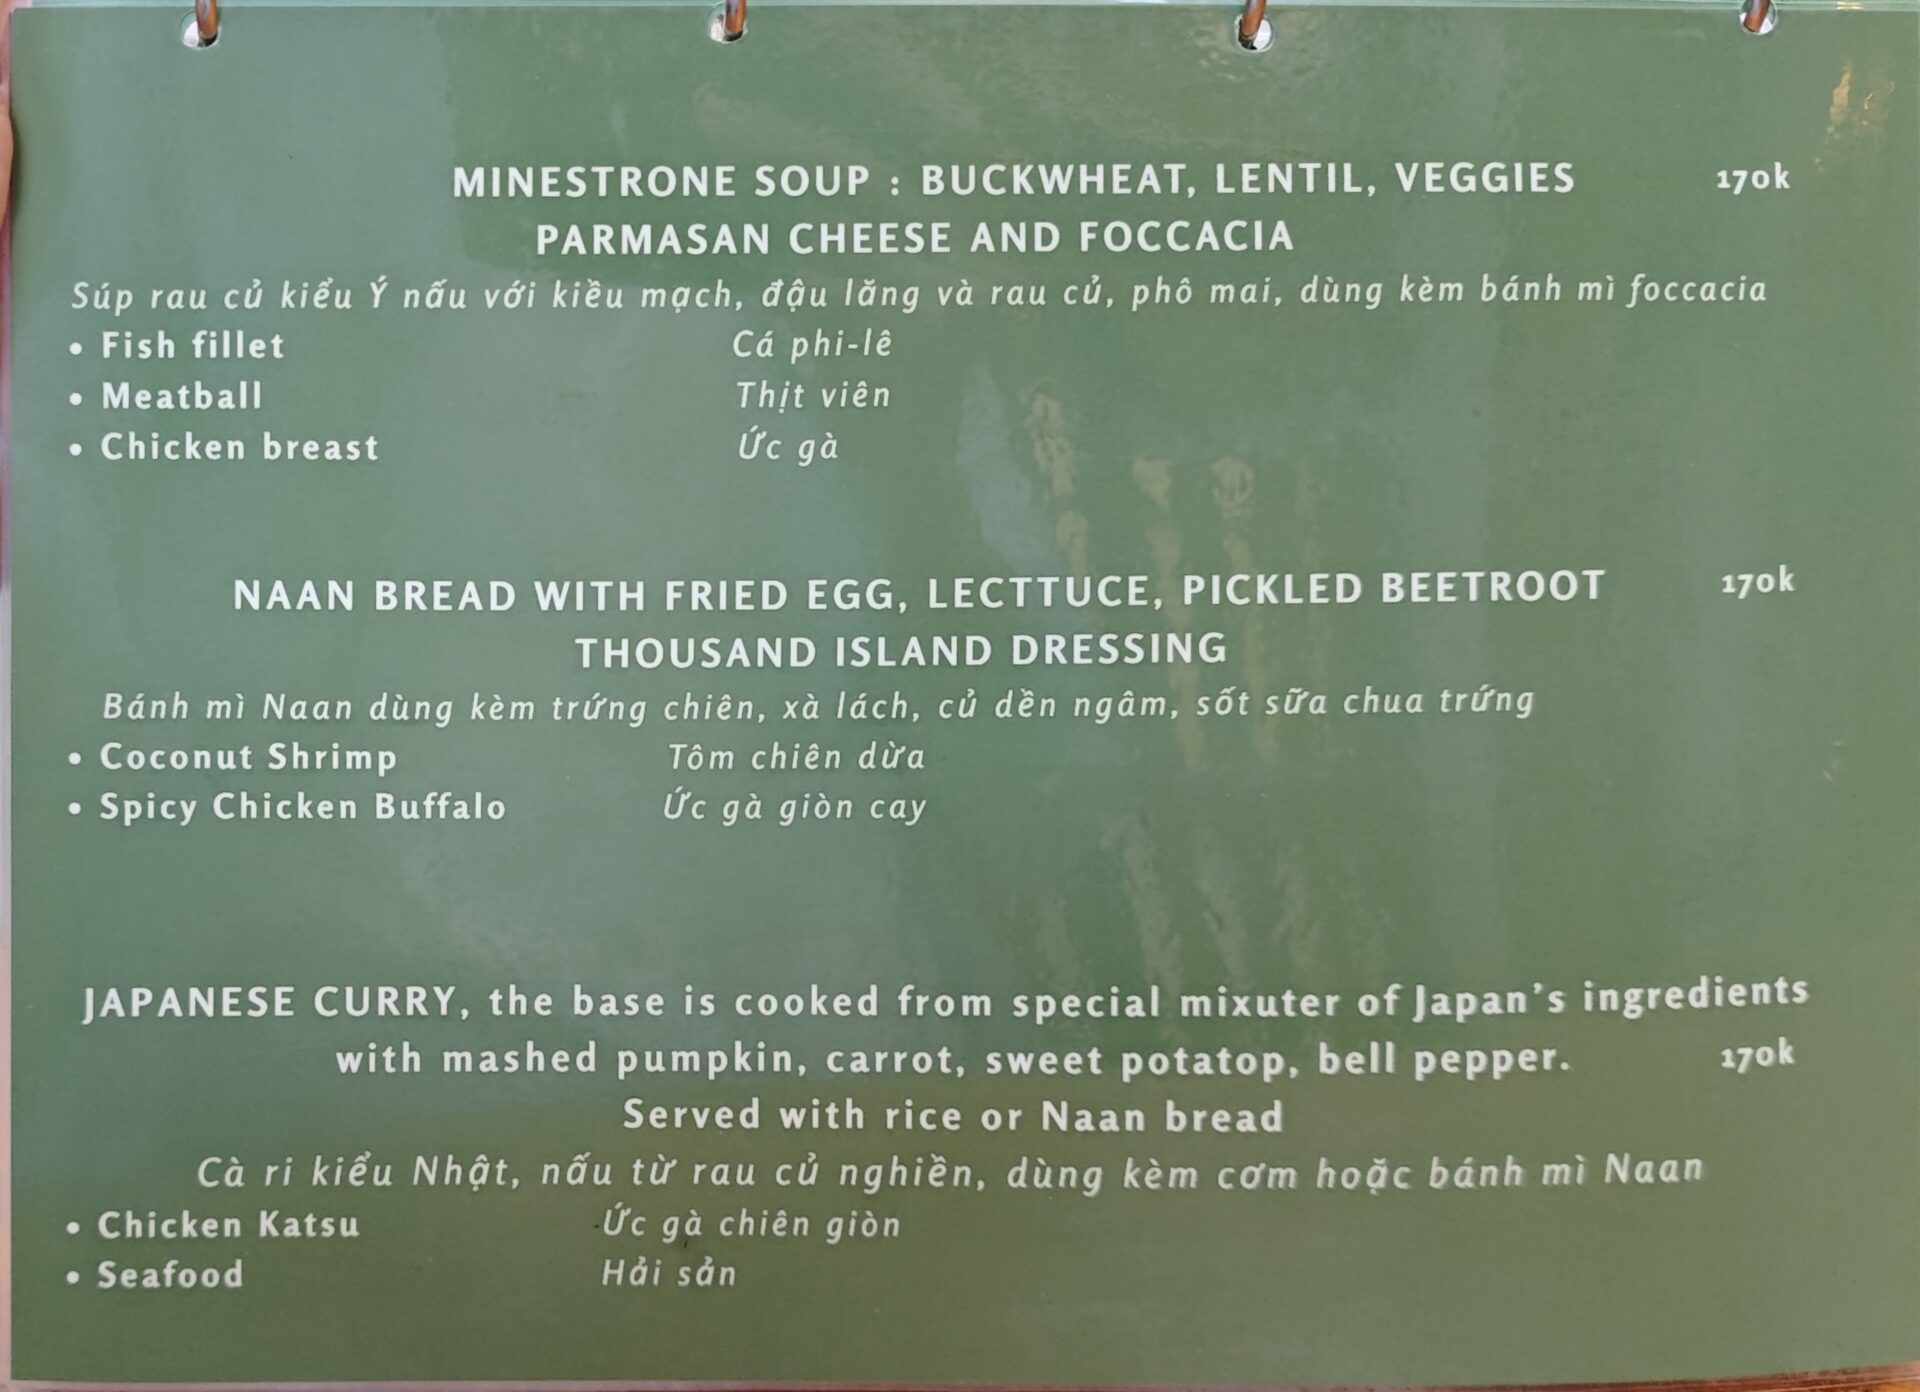 MINESTRONE SOUP : BUCKWHEAT, LENTIL, VEGGIES 170k
PARMASAN CHEESE AND FOCCACIA
Súp rau củ kiểu Ý nấu với kiều mạch, đậu lăng và rau củ, phô mai, dùng kèm bánh mì foccacia
• Fish fillet Cá phi-lê
• Meatball Thịt viên
• Chicken breast Ức gà
NAAN BREAD WITH FRIED EGG, LECTTUCE, PICKLED BEETROOT 170k
THOUSAND ISLAND DRESSING
Bánh mì Naan dùng kèm trứng chiên, xà lách, củ dền ngâm, sốt sữa chua trứng
• Coconut Shrimp Tôm chiên dừa
• Spicy Chicken Buffalo Ức gà giòn cay
JAPANESE CURRY, the base is cooked from special mixuter of Japan's ingredients
with mashed pumpkin, carrot, sweet potatop, bell pepper. 170k
Served with rice or Naan bread
Cà ri kiểu Nhật, nấu từ rau củ nghiền, dùng kèm cơm hoặc bánh mì Naan
• Chicken Katsu Ức gà chiên giòn
• Seafood Hải sản